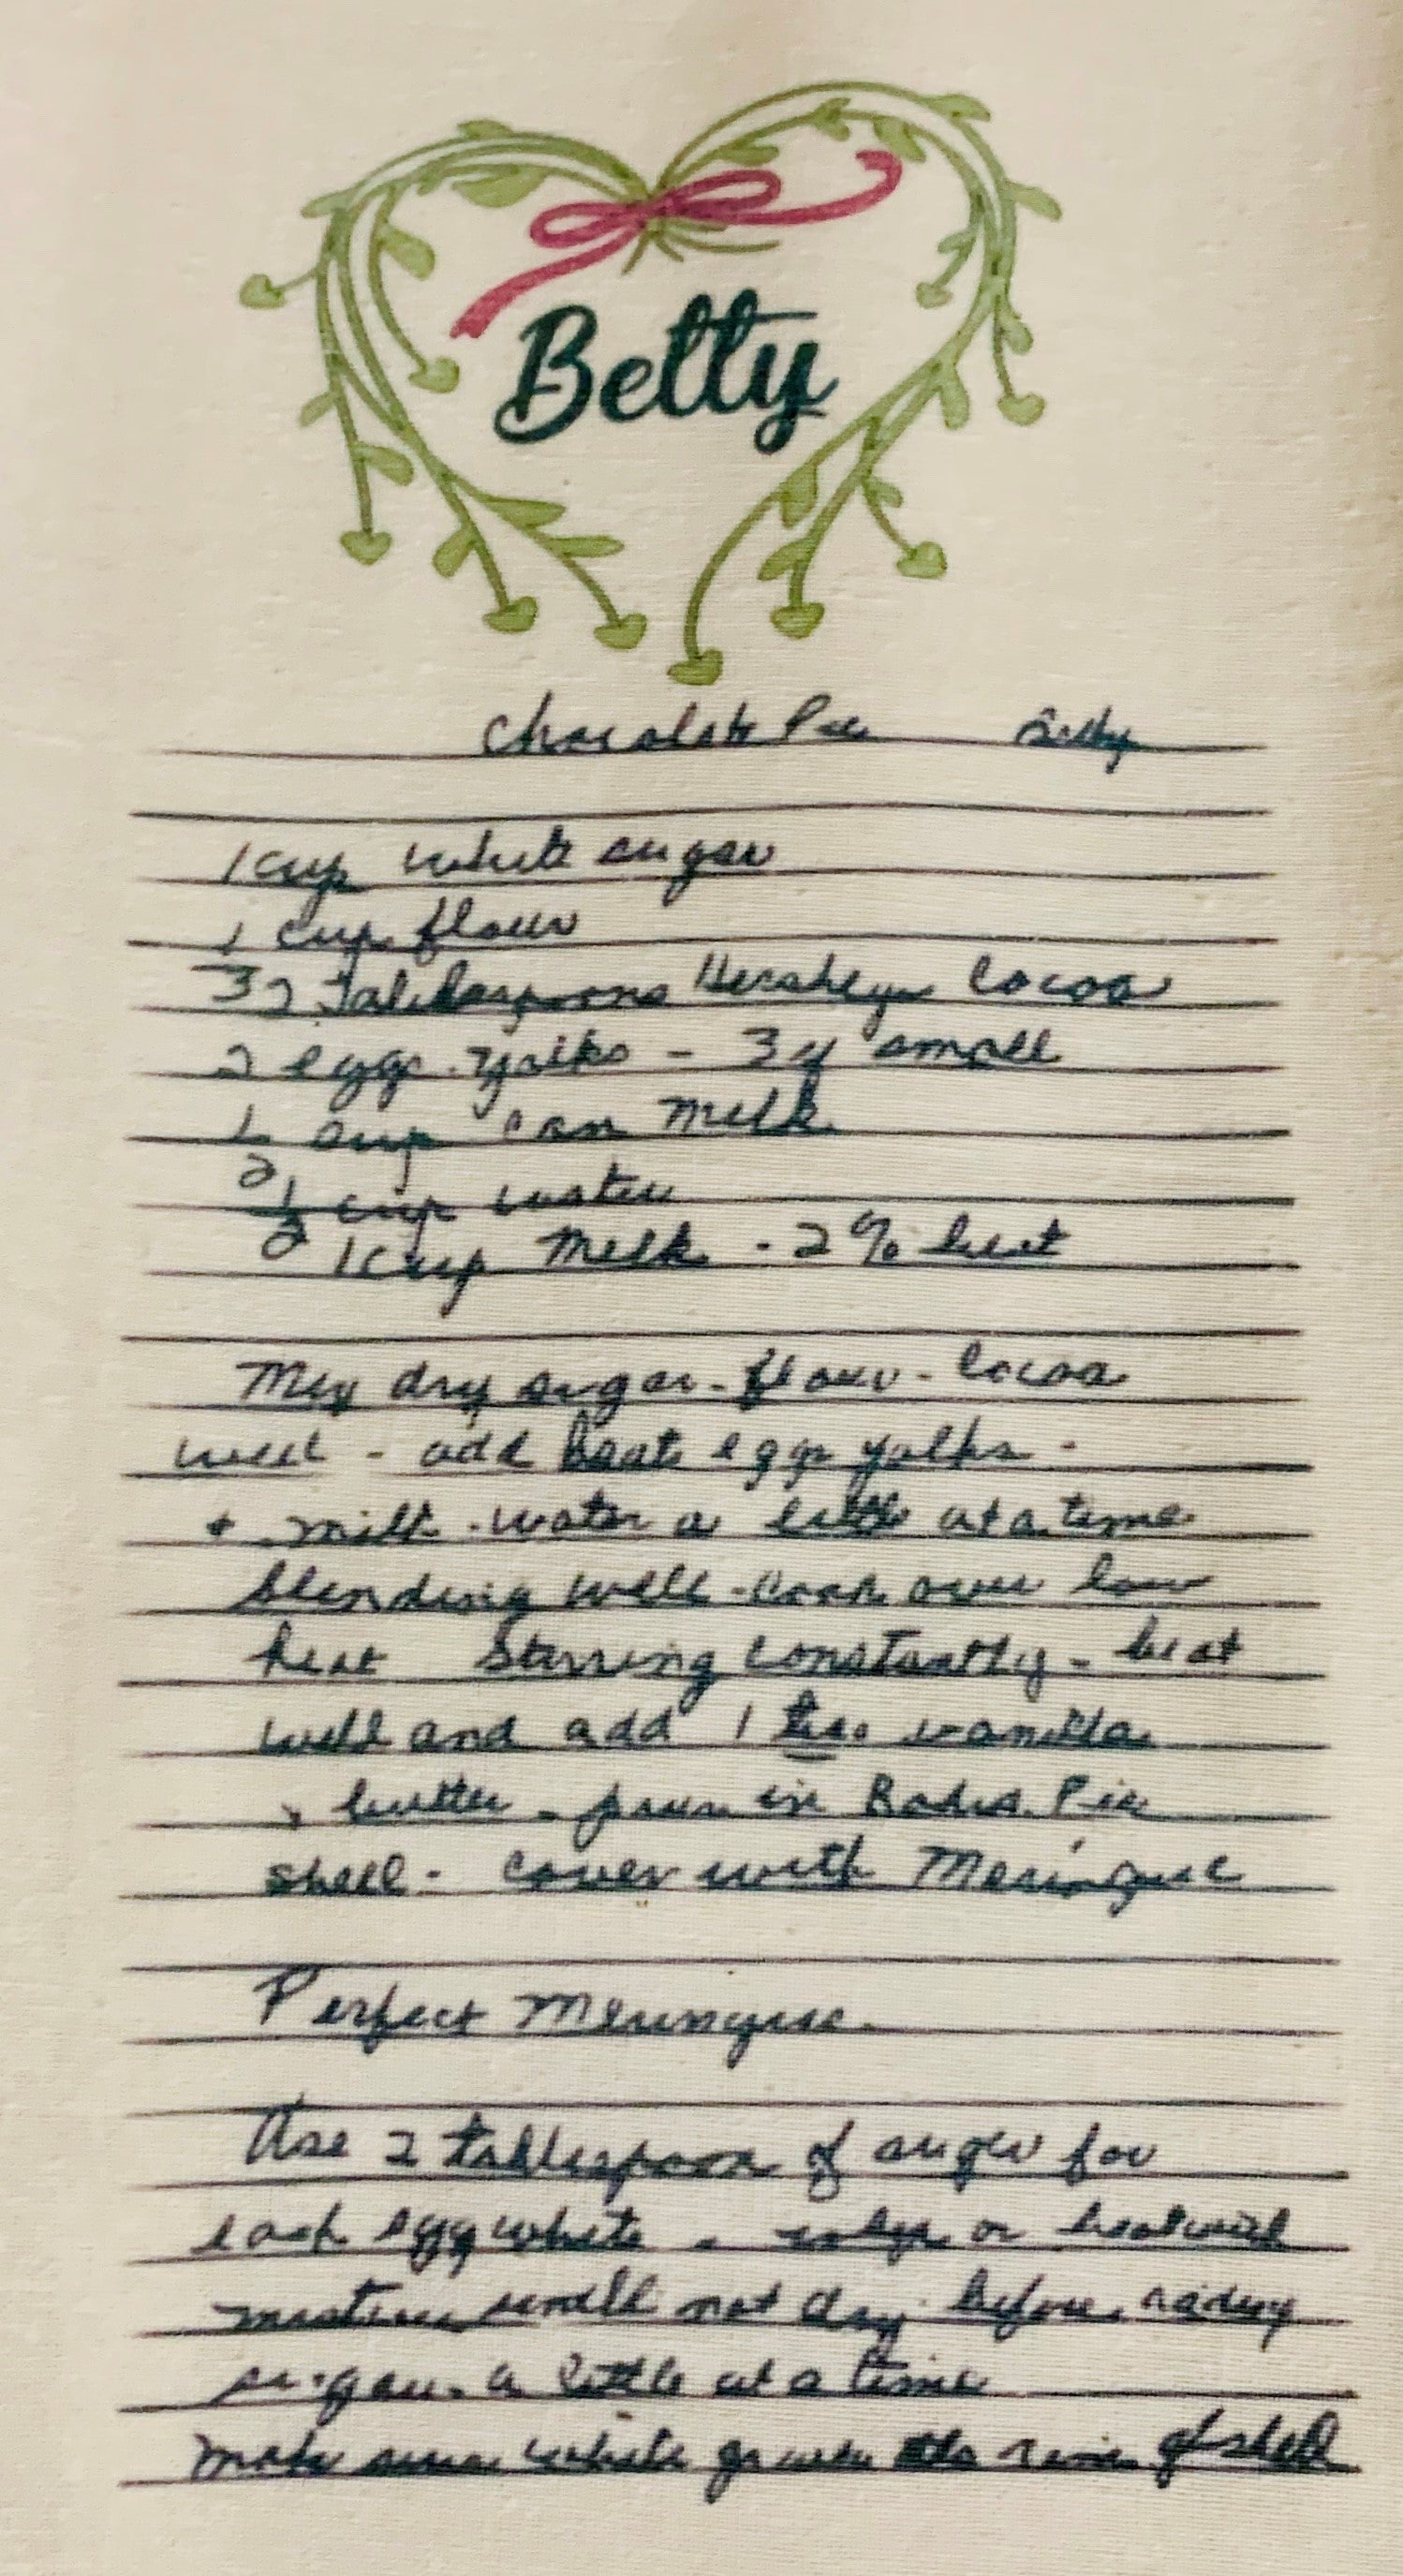 Betty
Chocolate Pie Betty
1 cup white sugar
1 cup flour
3 Tablespoons Hersheys Cocoa
2 eggs yolks - 3 if small
1/2 cup can milk
1/2 cup water
1 cup milk - 2% best
Mix dry sugar - flour - Cocoa
well - add beate eggs yolks -
+ milk - water a little at a time
blending well - cook over low
heat Stirring constantly - beat
well and add 1 tes. vanilla
+ butter - pour in Baked Pie
shell - cover with Meringue
Perfect Meringue.
Use 2 tablespoon of sugar for
each egg white - or beat until
moisture not dry before adding
sugar. a little at a time
make sure white go rim of shell